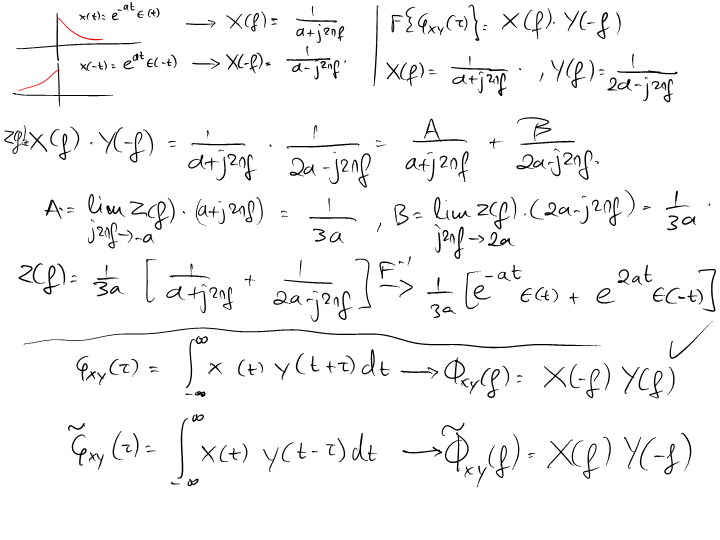 x(t) = e^{-at} ε(t) → X(f) = 1/(a+j2πf)
x(-t) = e^{at} ε(-t) → X(-f) = 1/(a-j2πf)
F{φ_xy(τ)} = X(f) · Y(-f)
X(f) = 1/(a+j2πf) , Y(f) = 1/(2a-j2πf)
Z(f) = X(f) · Y(-f) = 1/(a+j2πf) · 1/(2a-j2πf) = A/(a+j2πf) + B/(2a-j2πf)
A = lim_{j2πf→-a} Z(f) · (a+j2πf) = 1/(3a) , B = lim_{j2πf→2a} Z(f) · (2a-j2πf) = 1/(3a)
Z(f) = 1/(3a) [ 1/(a+j2πf) + 1/(2a-j2πf) ] F^{-1} → 1/(3a) [ e^{-at} ε(t) + e^{2at} ε(-t) ]
φ_xy(τ) = ∫_{-∞}^{∞} x(t) y(t+τ) dt → Φ_xy(f) = X(-f) Y(f) ✓
φ̃_xy(τ) = ∫_{-∞}^{∞} x(t) y(t-τ) dt → Φ̃_xy(f) = X(f) Y(-f)